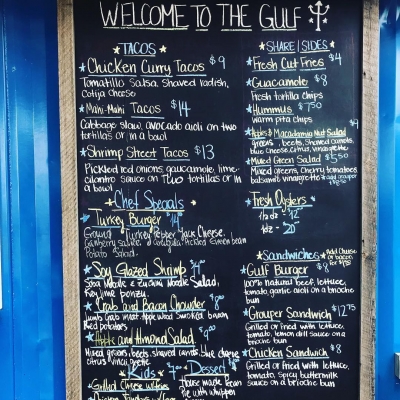 WELCOME TO THE GULF
TACOS
Chicken Curry Tacos $9
Tomatillo Salsa, Shaved radish,
Cotija Cheese
Mahi-Mahi Tacos $14
Cabbage slaw, avocado aioli on two
tortillas or in a bowl
Shrimp Street Tacos $13
Pickled red onions, guacamole, lime-
cilantro sauce on two tortillas or in
a bowl
Chef Specials
Turkey Burger $14
Ground Turkey, Pepper Jack Cheese,
Cranberry sauce, arugula, Pickled Green bean
Potato Salad.
Soy Glazed Shrimp
Soba Noodle & Zucchini Noodle Salad,
Key lime ponzu.
Crab and Bacon Chowder 8
Lump Crab meat, Applewood Smoked bacon
Red potatoes
Apple and Almond Salad 9.00
Mixed greens, beets, shaved carrots, blue cheese
citrus vinaigrette
Kids
Grilled Cheese w/fries
Chicken Tenders w/fries
Dessert
house made
pie with whipped
SHARE | SIDES
Fresh Cut Fries $4
Guacamole $8
Fresh tortilla chips
Hummus $7.50
warm pita chips
Apple & Macadamia Nut Salad $9
greens, beets, Shaved carrots,
blue cheese, citrus vinaigrette
Mixed Green Salad $5.50
Mixed greens, Cherry tomatoes,
balsamic vinaigrette
Fresh Oysters
1/2 dz - 12
1dz - 20
Sandwiches
Add Cheese
or bacon
for $1.50
Gulf Burger $8
100% Natural beef, lettuce,
tomato, garlic aioli on a brioche
bun
Grouper Sandwich $12.75
Grilled or fried with lettuce,
tomato, lemon dill sauce on a
brioche bun
Chicken Sandwich $8
Grilled or fried with lettuce,
tomato, Spicy buttermilk
sauce on a brioche bun